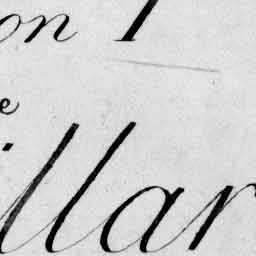 on I
e
illar